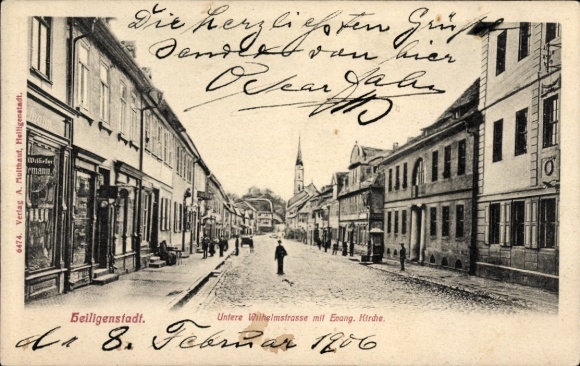 Die herzlichsten Grüße
sendet von hier
Oscar Hahn
Wilhelm
mann
6474. Verlag A. Huthauf, Heiligenstadt.
Heiligenstadt.
Untere Wilhelmstrasse mit Evang. Kirche.
d. 8. Februar 1906